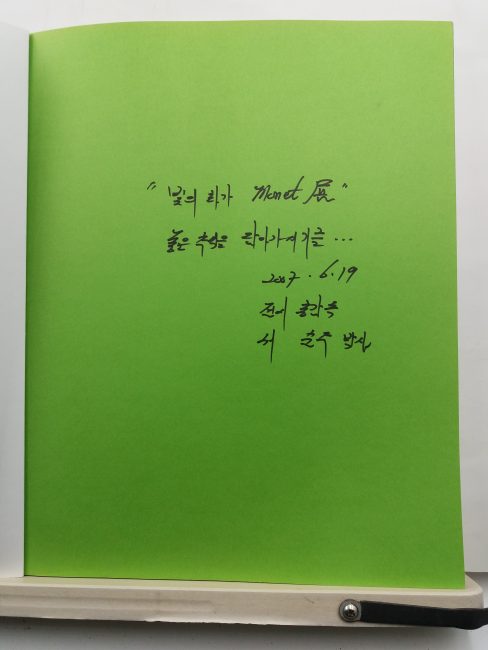 "빛의 화가 Monet 展"
좋은 추억을 담아가시기를 ...
2007. 6. 19
전시 총감독
서 순주 박사